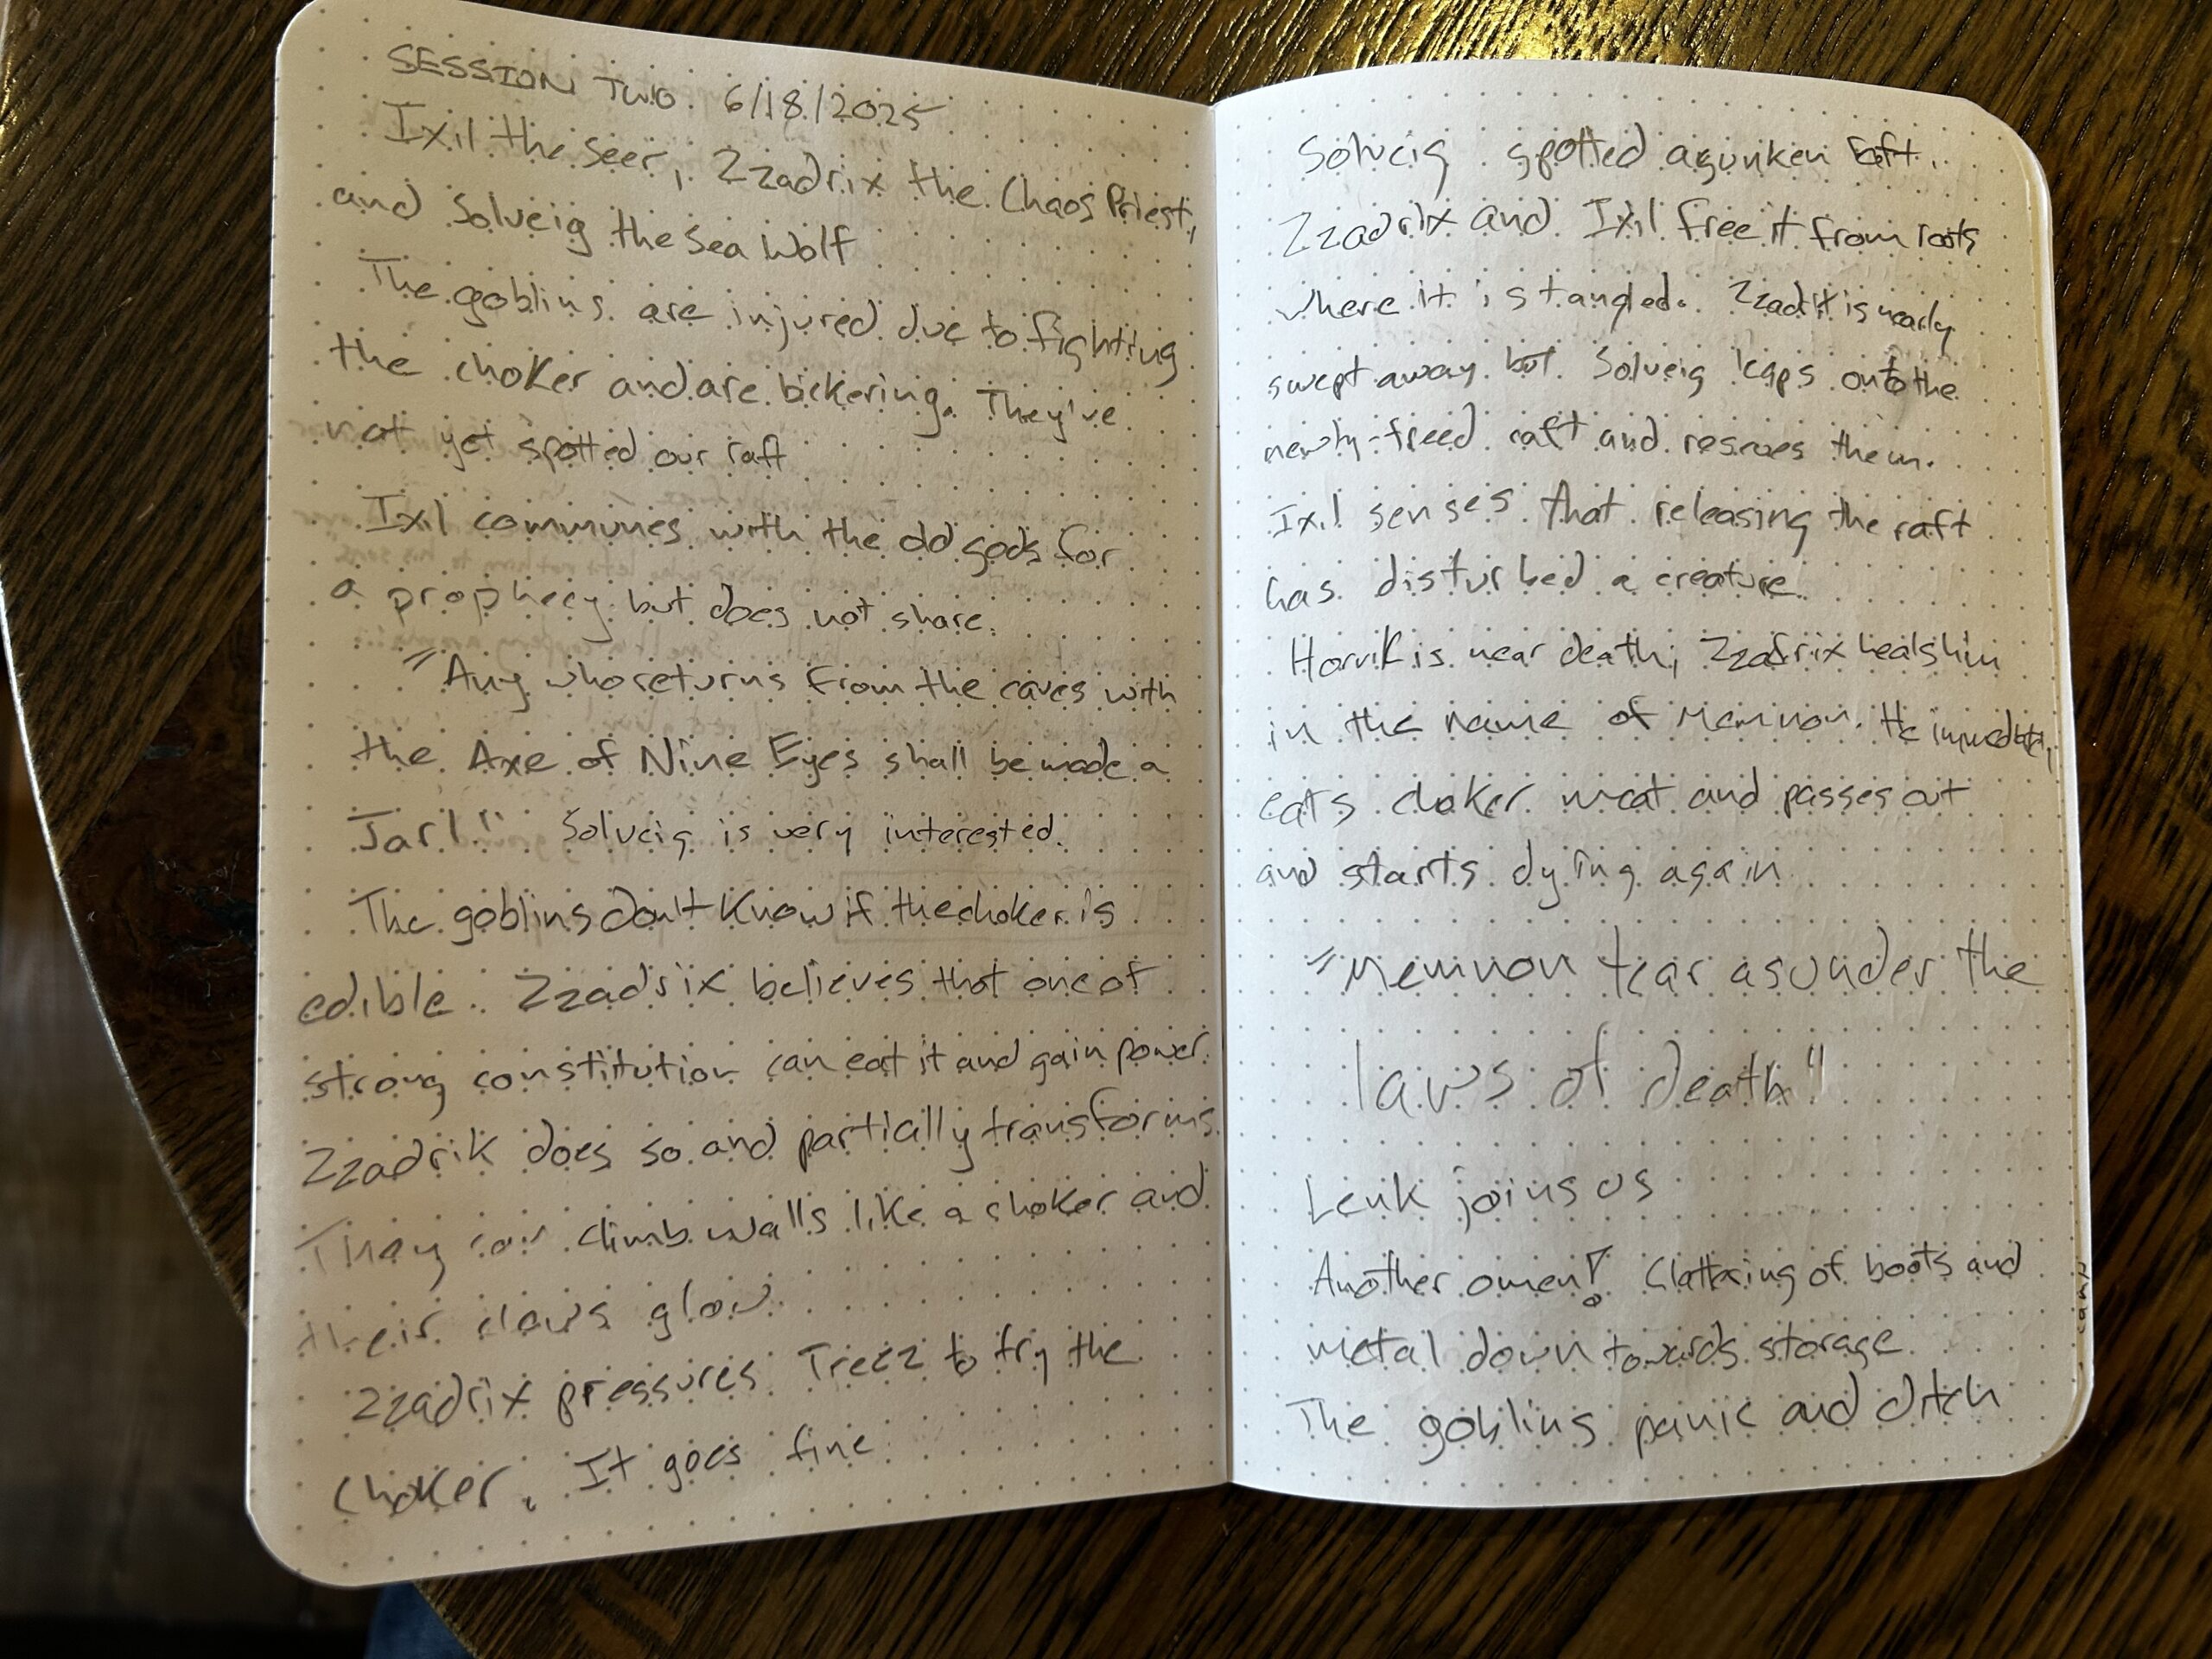 SESSION TWO. 6/18/2025
Ixil the Seer, Zzadrix the Chaos Priest,
and Solveig the Sea Wolf
The goblins are injured due to fighting
the choker and are bickering. They've
not yet spotted our raft
Ixil communes with the old gods for
a prophecy but does not share.
"Any who returns from the caves with
the Axe of Nine Eyes shall be made a
Jarl" Solveig is very interested.
The goblins don't know if the choker is
edible. Zzadrix believes that one of
strong constitution can eat it and gain power.
Zzadrik does so and partially transforms.
They can climb walls like a choker and
their claws glow
Zzadrix pressures Treez to try the
choker. It goes fine
Solveig spotted a sunken raft.
Zzadrix and Ixil free it from roots
where it is tangled. Zzadrix is nearly
swept away but Solveig leaps onto the
newly-freed raft and rescues them.
Ixil senses that releasing the raft
has disturbed a creature
Horvik is near death; Zzadrix heals him
in the name of Memnon. He immediately
eats choker meat and passes out
and starts dying again
"Memnon tear asunder the
laws of death"
Lenk joins us
Another omen! Clattering of boots and
metal down towards storage
The goblins panic and ditch